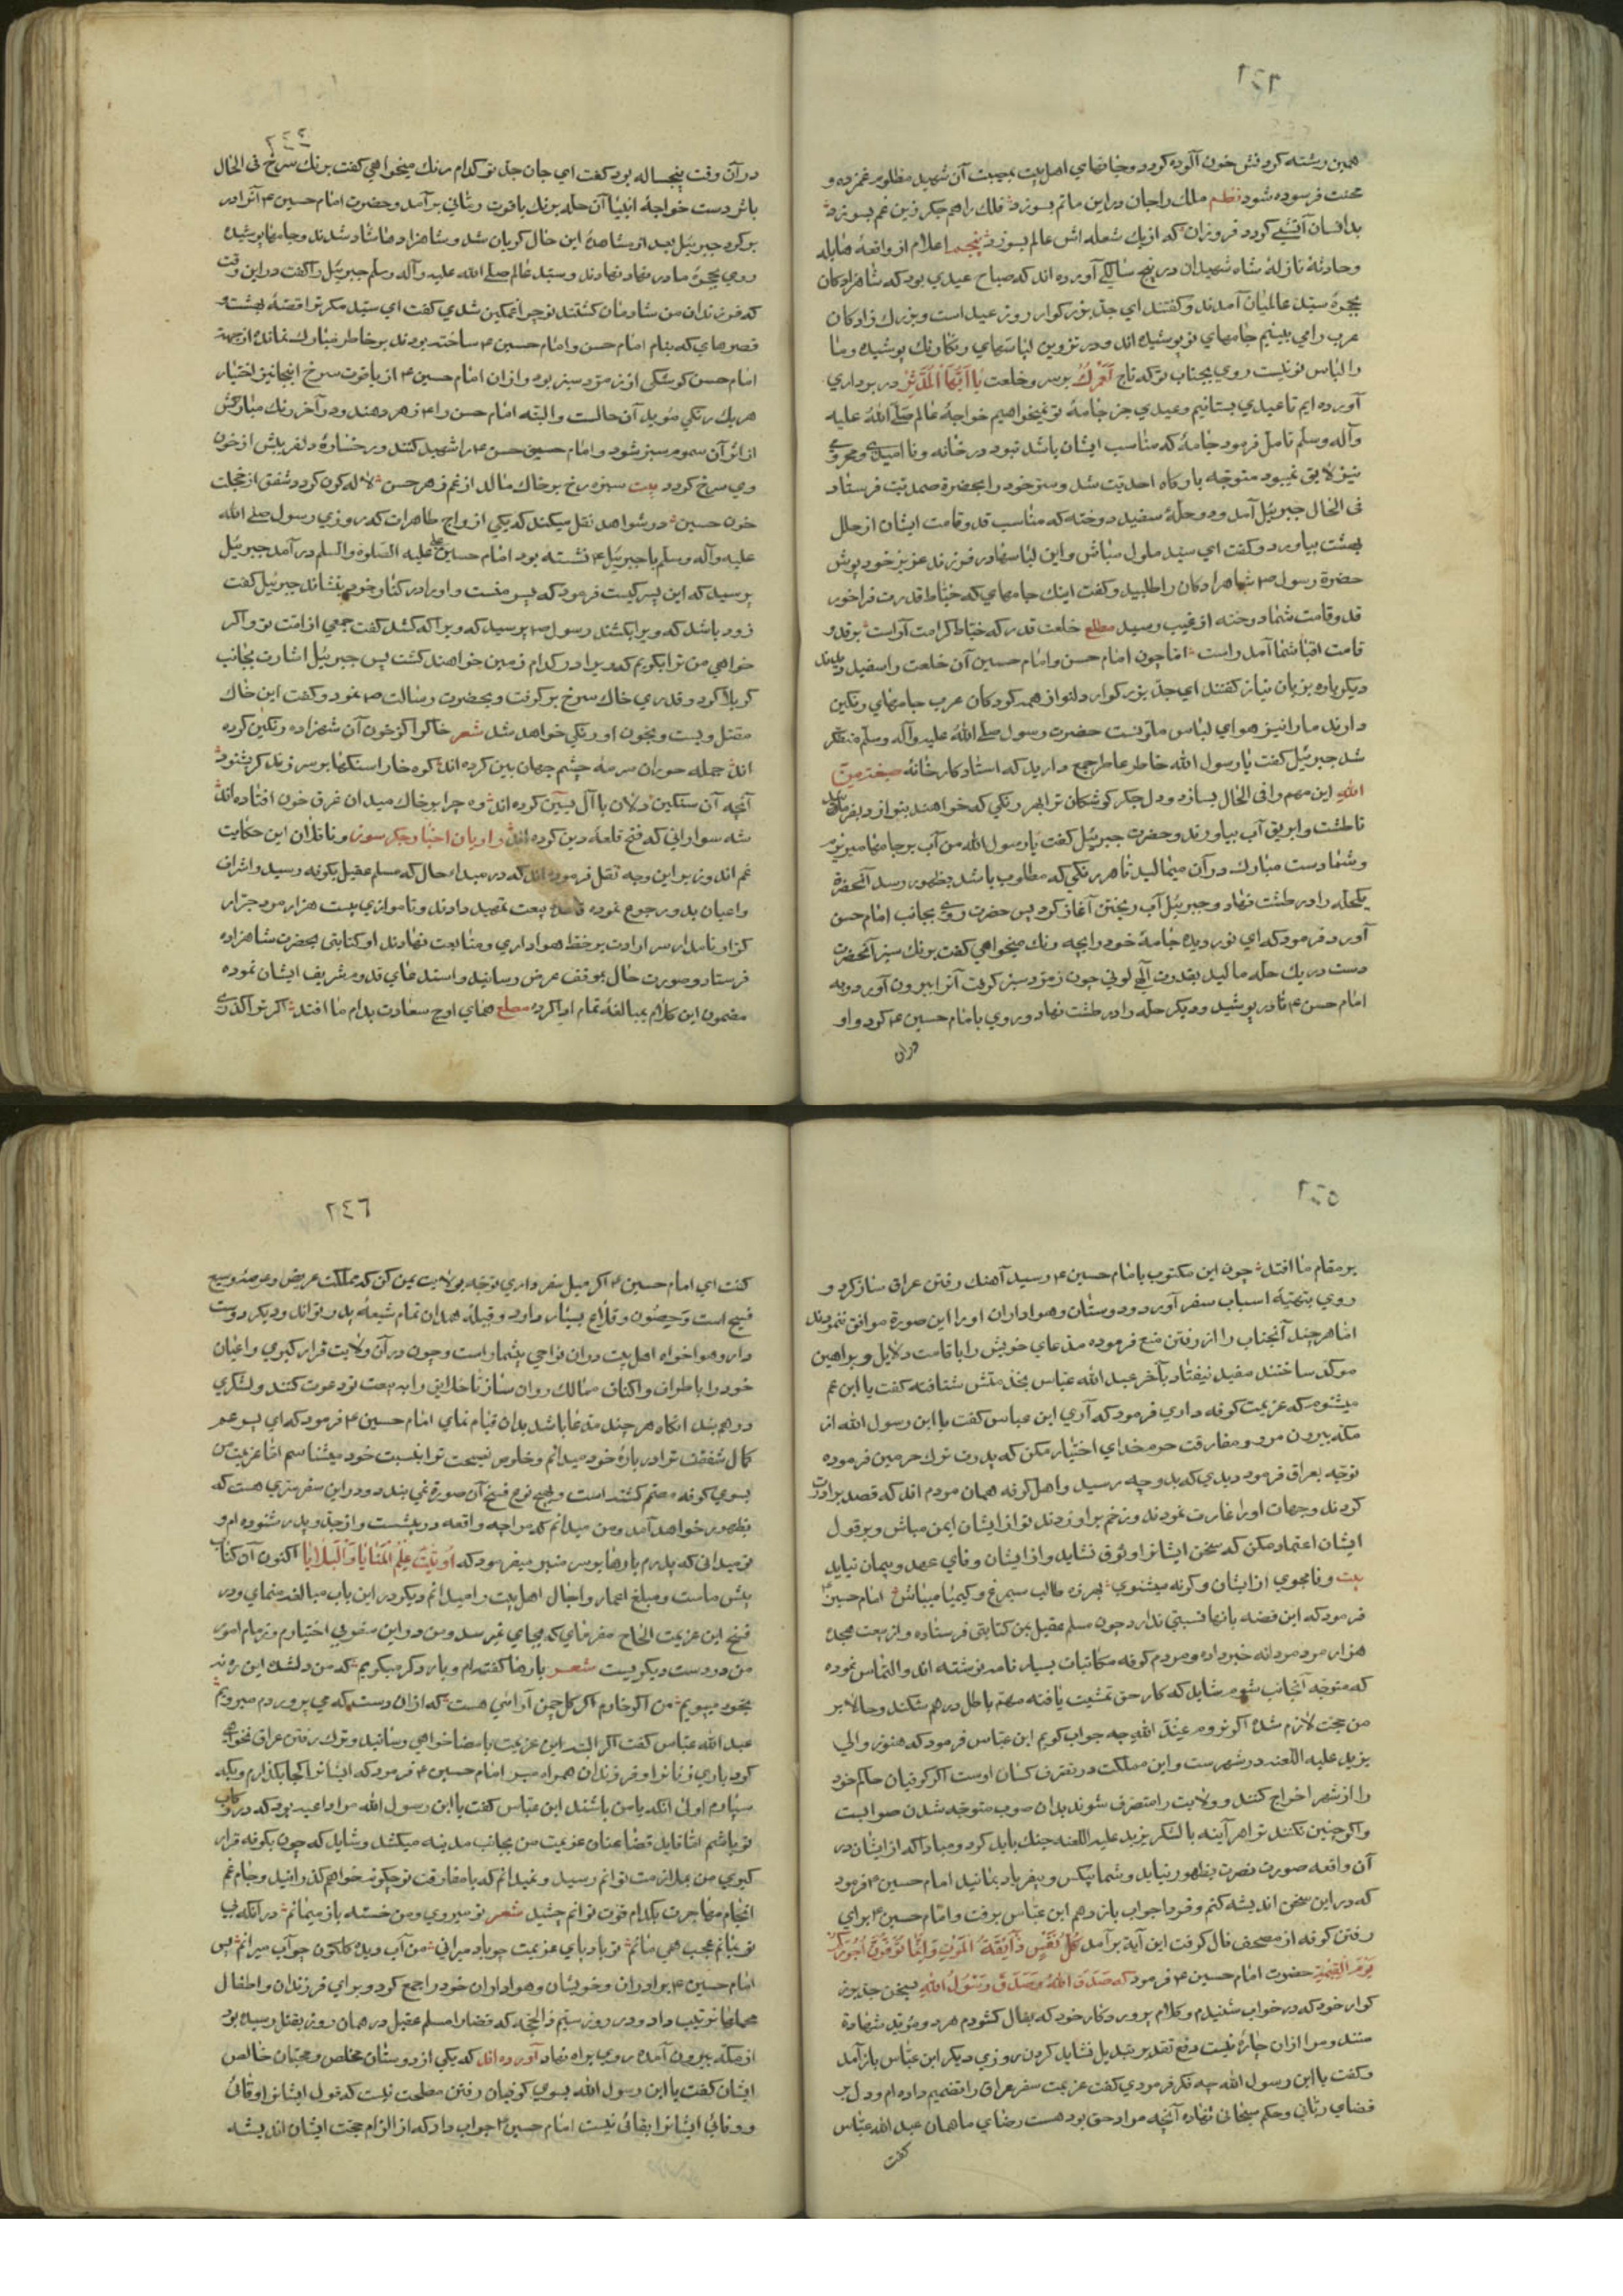 ٢٤٣
همین رشته کردنش خون آلوده کردد و جانهای اهل بیت بمصیبت آن شهید مظلوم غمزده و
محنت فرسوده شود نظم ملک را جان در این ماتم بسوزد فلک را هم جکر زین غم بسوزد
بدانسان آتشی کردد فروزان که از یک شعله اش عالم بسوزد پنجم اعلام از واقعهٔ هایله
و حادثهٔ نازلهٔ شاه شهیدان در پنج سالکی آورده اند که صباح عیدی بود که شاهزادکان
بحجرهٔ سید عالمیان آمدند و کفتند ای جد بزرکوار روز عیدست و بزرک زادکان
عرب را می بینیم جامهای نو پوشیده اند و در تزوین لباسهای رنکارنک پوشیده و ما
را لباس نو نیست روی بجناب تو که تاج لعمرک بر سر و خلعت یا ایها المدثر در بر داری
آورده ایم تا عیدی بستانیم و عیدی جز جامهٔ نو نمیخواهیم خواجهٔ عالم صلی الله علیه
وآله وسلم تامل فرمود جامهٔ که مناسب ایشان باشد نبود در خانه و نا امیدی و محرومی
نیز لایق نمیبود متوجه بارکاه احدیت شد و سر خود را بحضرة صمدیت فرستاد
فی الحال جبرئیل آمد و دو حلهٔ سفید دوخته که مناسب قد و قامت ایشان از حلل
بهشت بیاورد و کفت ای سید ملول مباش و این لباسها در فرزند عزیز خود پوش
حضرة رسول ص شاهزادکان را طلبید و کفت اینک جامهای که خیاط قدرت فراخور
قد و قامت شما دوخته از غیب رسید مطلع خلعت قدر که خیاط کرامت آراست بر قد و
قامت اقبال شما آمد راست اما چون امام حسن و امام حسین آن خلعت را سفید دیدند
دیکر باره بزبان نیاز کفتند ای جد بزرکوار دلنواز همه کودکان عرب جامهای رنکین
دارند ما را نیز هوای لباس ملونست حضرت رسول صلی الله علیه وآله وسلم متفکر
شد جبرئیل کفت یا رسول الله خاطر عاطر جمع دارید که استاد کارخانهٔ صبغة من
الله این مهم را فی الحال بسازد و دل جکر کوشکان ترا بهر رنکی که خواهند بنوازد بفرمائید
تا طشت و ابریق آب بیاورند و حضرت جبرئیل کفت یا رسول الله من آب بر جامها میریزم
و شما دست مبارک در آن میمالید تا هر رنکی که مطلوب باشد بظهور رسد آنحضرة
یک حله را در طشت نهاد و جبرئیل آب ریختن آغاز کرد پس حضرت روی بجانب امام حسن
آورد و فرمود که ای نور دیده جامهٔ خود را بچه رنک میخواهی کفت برنک سبز آنحضرت
دست در یک حله مالید بقدرت الهی لونی چون زمرد سبز کرفت آنرا بیرون آورد و به
امام حسن ع داد در پوشید و دیکر حله را در طشت نهاد و روی بامام حسین ع کرد و او
دران
٢٤٤
در آن وقت پنجساله بود کفت ای جان جد تو کدام رنک میخواهی کفت برنک سرخ فی الحال
باثر دست خواجهٔ انبیا آن حله برنک یاقوت رمانی برآمد و حضرت امام حسین ع آنرا در
بر کرد جبرئیل بعد از مشاهدهٔ این حال کریان شد و شاهزادها شاد شدند و جامها پوشیده
روی بحجرهٔ مادر نهاد نهادند و سید عالم صلی الله علیه وآله وسلم جبرئیل را کفت در این وقت
که فرزندان من شادمان کشتند تو چرا غمکین شدی کفت ای سید مکر ترا قصهٔ بهشت و
قصرهای که بنام امام حسن و امام حسین ع ساخته بودند بر خاطر مبارک نمانده از جهة
امام حسن کوشکی از زمرد سبز بود و از آن امام حسین ع از یاقوت سرخ اینجا نیز اختیار
هر یک رنکی مؤید آن حالست و البته امام حسن را ع زهر دهند و در آخر رنک مبارکش
از اثر آن سموم سبز شود و امام حسین حسن ع را شهید کنند و رخسارهٔ دلفریبش از خون
وی سرخ کردد بیت سبزه رخ بر خاک مالد از غم زهر حسن لاله کون کردد شفق از خجلت
خون حسین در شواهد نقل میکند که یکی از ازواج طاهرات که روزی رسول صلی الله
علیه وآله وسلم با جبرئیل ع نشسته بود امام حسین علیه الصلوة والسلم در آمد جبرئیل
پرسید که این پسر کیست فرمود که پسر منست و او را در کنار خود بنشاند جبرئیل کفت
زود باشد که ویرا بکشند رسول ص پرسید که ویرا که کشد کفت جمعی از امت تو و اکر
خواهی من ترا بکویم که ویرا در کدام زمین خواهند کشت پس جبرئیل اشارت بجانب
کربلا کرد و قدری خاک سرخ بر کرفت و بحضرت رسالت ص نمود و کفت این خاک
مقتل ویست و بخون او رنکی خواهد شد شعر خاکرا کز خون آن شهزاده رنکین کرده
اند جمله حوران سرمهٔ چشم جهان بین کرده اند کوه خارا سنکها بر سر زند کر بشنود
آنچه آن سنکین دلان با آل یسین کرده اند وه چرا بر خاک میدان غرق خون افتاده اند
شه سوارانی که فتح قلعهٔ دین کرده اند راویان اخبار جکر سوز و ناقلان این حکایت
غم اندوز بر این وجه نقل فرموده اند که در مبداء حال که مسلم عقیل بکوفه رسید و اشراف
و اعیان بدو رجوع نموده قاعدهٔ بیعت تمهید دادند و تا موازی بیست هزار مرد جرار
کزار نامدار سر ارادت بر خط هواداری و متابعت نهادند او کتابتی بحضرت شاهزاده
فرستاد و صورت حال بموقف عرض رسانید و استدعای قدوم شریف ایشان نموده
مضمون این کلام بمبالغهٔ تمام ادا کرده مطلع همای اوج سعادت بدام ما افتد اکر ترا کذری
٢٤٥
بر مقام ما افتد چون این مکتوب بامام حسین ع رسید آهنک رفتن عراق ساز کرد و
روی بتهیهٔ اسباب سفر آورد و دوستان و هواداران او را این صورة موافق ننمودند
اما هر چند آنجناب را از رفتن منع فرموده مدعای خویش را باقامت دلایل و براهین
موکد ساختند مفید نیفتاد بآخر عبد الله عباس بخدمتش شتافته کفت یا ابن عم
میشنوم که عزیمت کوفه داری فرمود که آری ابن عباس کفت یا ابن رسول الله از
مکه بیرون مرو و مفارقت حرم خدای اختیار مکن که پدرت ترک حرمین فرموده
توجه بعراق فرمود دیدی که بدو چه رسید و اهل کوفه همان مردم اند که قصد برادرت
کردند و جهات او را غارت نمودند و زخم براو زدند تو از ایشان ایمن مباش و بر قول
ایشان اعتماد مکن که سخن ایشانرا وثوق نشاید و از ایشان وفای عهد و پیمان نیاید
بیت وفا مجوی از ایشان و کرنه میشنوی بهرزه طالب سیمرغ و کیمیا میباش امام حسین ع
فرمود که این قضه بآنها نسبتی ندارد چون مسلم عقیل بمن کتابتی فرستاده و از بیعت هجده
هزار مرد مردانه خبر داده و مردم کوفه مکاتبات بسیار نامه نوشته اند و التماس نموده
که متوجه آنجانب شوم شاید که کار حق تمشیت یافته مهم باطل در هم شکند و حالا بر
من حجت لازم شده اکر نروم عند الله چه جواب کویم ابن عباس فرمود که هنوز والی
یزید علیه اللعنه در شهرست و این مملکت در تصرف کسان اوست اکر کوفیان حاکم خود
را از شهر اخراج کنند و ولایت را متصرف شوند بدان صوب متوجه شدن صوابست
واکر چنین نکنند ترا هر آینه با لشکر یزید علیه اللعنه جنک باید کرد و مبادا که از ایشان در
آن واقعه صورت نصرت بظهور نیاید و شما بیکس و بیفریاد بمانید امام حسین ع فرمود
که در این سخن اندیشه کنم و فردا جواب باز دهم ابن عباس برفت و امام حسین ع برای
رفتن کوفه از مصحف فال کرفت این آیة برآمد کل نفس ذائقة الموت و انما توفون اجورکم
یوم القیمة حضرت امام حسین ع فرمود که صدق الله و صدق رسول الله سخن جد بزر
کوار خود که در خواب شنیدم و کلام پروردکار خود که بفال کشودم هر دو مؤید شهادة
منند و مرا از آن چاره نیست دفع تقدیر بتبدیل نشاید کردن روزی دیکر ابن عباس باز آمد
و کفت یا ابن رسول الله چه فکر فرمودی کفت عزیمت سفر عراق را تصمیم داده ام و دل بر
قضای ربانی و حکم سبحانی نهاده آنچه مراد حق بود هست رضای ما همان عبد الله عباس
کفت
٢٤٦
کفت ای امام حسین ع اکر میل سفر داری توجه بولایت یمن کن که مملکت عریض و عرصهٔ وسیع
فسیح است و حصون و قلاع بسیار دارد و قبیلهٔ همدان تمام شیعهٔ پدر تو اند و دیکر دوست
دار و هواخواه اهل بیت در آن نواحی بیشمار است و چون در آن ولایت قرار کیری داعیان
خود را باطراف و اکناف ممالک روان ساز تا خلایق را به بیعت تو دعوت کنند و لشکری
در هم بند انکاه هر چند مدعا باشد بدان قیام نمای امام حسین ع فرمود که ای پسر عم
کمال شفقت ترا در بارهٔ خود میدانم و خلوص نصیحت ترا بنسبت خود میشناسم اما عزیمت من
بسوی کوفه مصمم کشته است و بهیچ نوع فسخ آن صورة نمی بندد و در این سفر سری هست که
بظهور خواهد آمد و من میدانم که مرا چه واقعه در پیشست و از جد و پدر شنوده ام و
تو میدانی که پدرم بارها بر سر منبر میفرمود که اوتیت علم المنایا و البلایا اکنون آن کتاب
پیش ماست و مبلغ اعمار و اجال اهل بیت را میدانم دیکر در این باب مبالغه منمای و در
فسخ این عزیمت الحاح مفرمای که بجای نمیرسد و من در این سفر بی اختیارم و زمام امور
من در دست دیکریست شعر بارها کفته ام و بار دکر میکویم که من دلشده این ره نه
بخود میپویم من اکر خارم اکر کل چمن آرائی هست که از آن دست که می پروردم میرویم
عبد الله عباس کفت اکر البته این عزیمت بامضا خواهی رسانید و ترک رفتن عراق نخواهی
کرد باری زنانرا و فرزندان همراه مبر امام حسین ع فرمود که ایشانرا کجا بکذارم و بکه
سپارم اولی انکه با من باشند ابن عباس کفت یا ابن رسول الله مرا داعیه بود که در رکاب
تو باشم اما قاید قضا عنان عزیمت من بجانب مدینه میکشد و شاید که چون بکوفه قرار
کیری من بملازمت توانم رسید و نمیدانم که با مفارقت تو چکونه خواهم کذرانید و جام غم
انجام مهاجرت بکدام قوت توانم چشید شعر تو میروی و من خسته باز میمانم در آنکه بی
تو بمانم عجب همی مانم تو باد پای عزیمت چو باد میرانی من آب دیدهٔ کلکون چو آب میرانم پس
امام حسین ع برادران و خویشان و هواداران خود را جمع کرد و برای فرزندان و اطفال
محملها ترتیب داد و در روز سیم ذالحجه که قضارا مسلم عقیل در همان روز بقتل رسیده بود
از مکه بیرون آمده روی براه نهاد آورده اند که یکی از دوستان مخلص و محبان خالص
ایشان کفت یا ابن رسول الله بسوی کوفیان رفتن مصلحت نیست که قول ایشانرا وفائی
و وفای ایشانرا بقائی نیست امام حسین ع جواب داد که از الزام حجت ایشان اندیشه